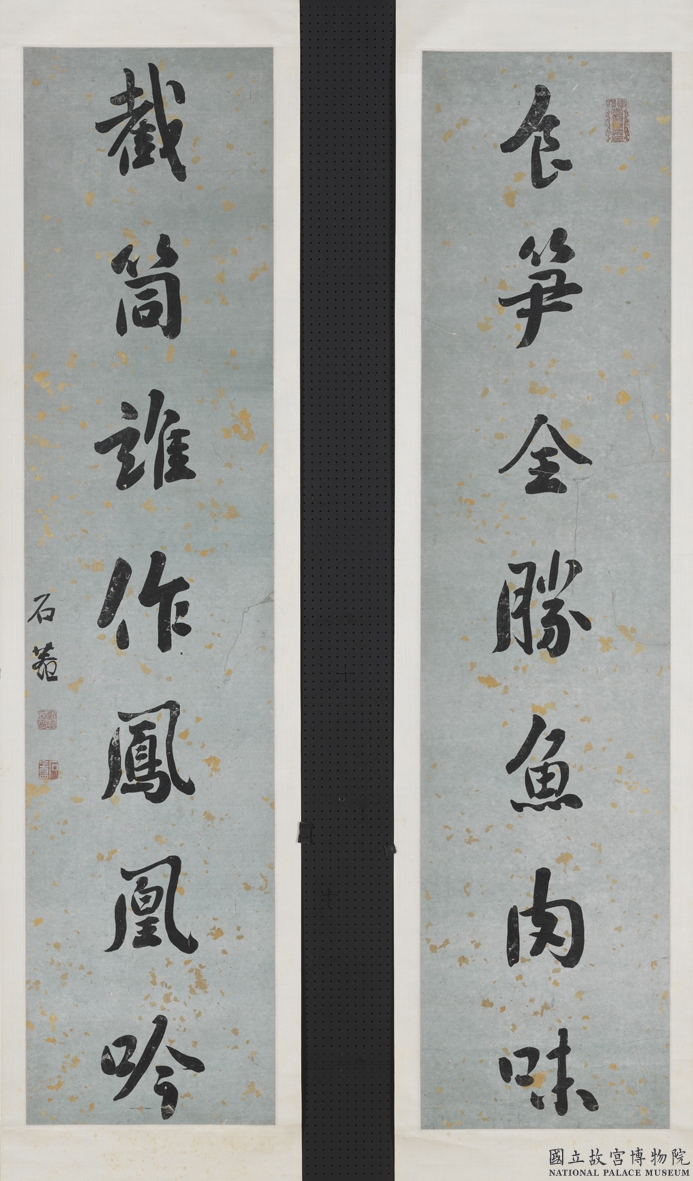 食笋全勝魚肉味
截筒誰作鳳凰吟
石菴
國立故宮博物院
NATIONAL PALACE MUSEUM